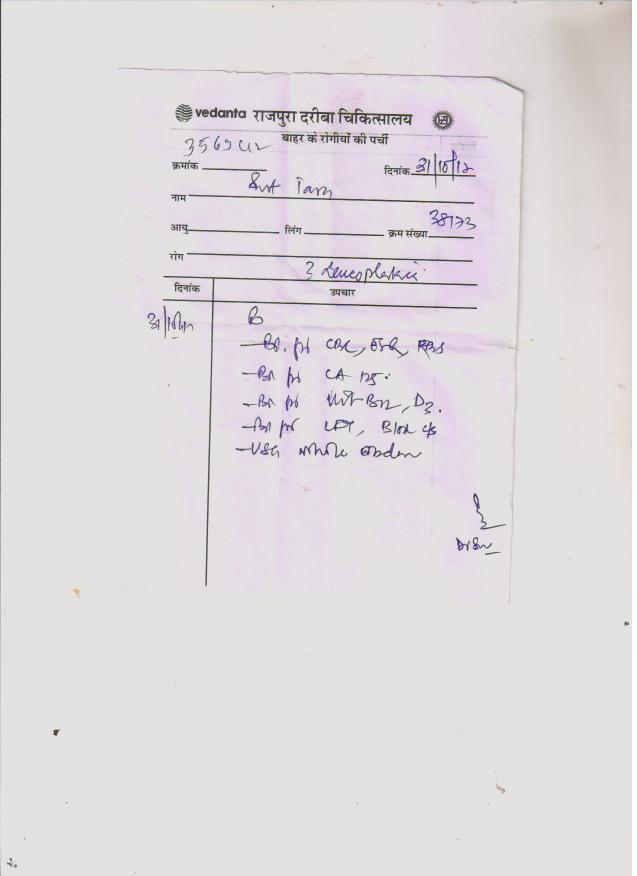 vedanta राजपुरा दरीबा चिकित्सालय
बाहर के रोगीयों की पर्ची
क्रमांक
दिनांक 31/10/12
नाम
38173
आयु लिंग क्रम संख्या
रोग
? Leucoplakia
दिनांक उपचार
31/10/12
- Bl. for CBC, ESR, RBS
- Bl for CA 125.
- Bl for Vit B12, D3.
- Bl for LFT, Blood c/s
- USG whole abdomen